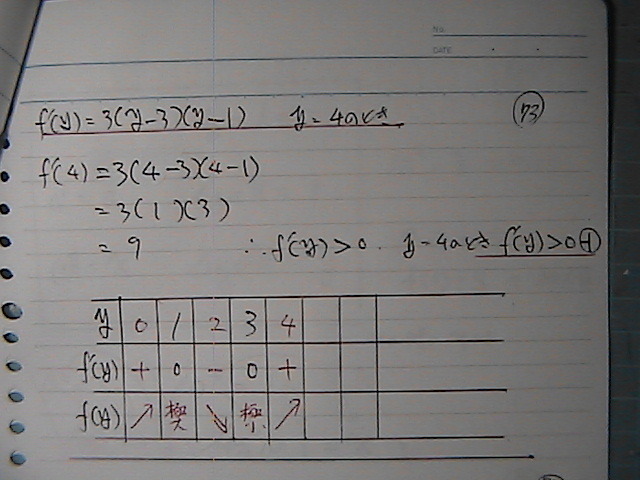 NO.
DATE . .
f'(y)=3(y-3)(y-1) y=4のとき 73
f'(4)=3(4-3)(4-1)
=3(1)(3)
=9 ∴f'(y)>0. y=4のとき f'(y)>0 +
y 0 1 2 3 4
f'(y) + 0 - 0 +
f(y) ↗ 極大 ↘ 極小 ↗